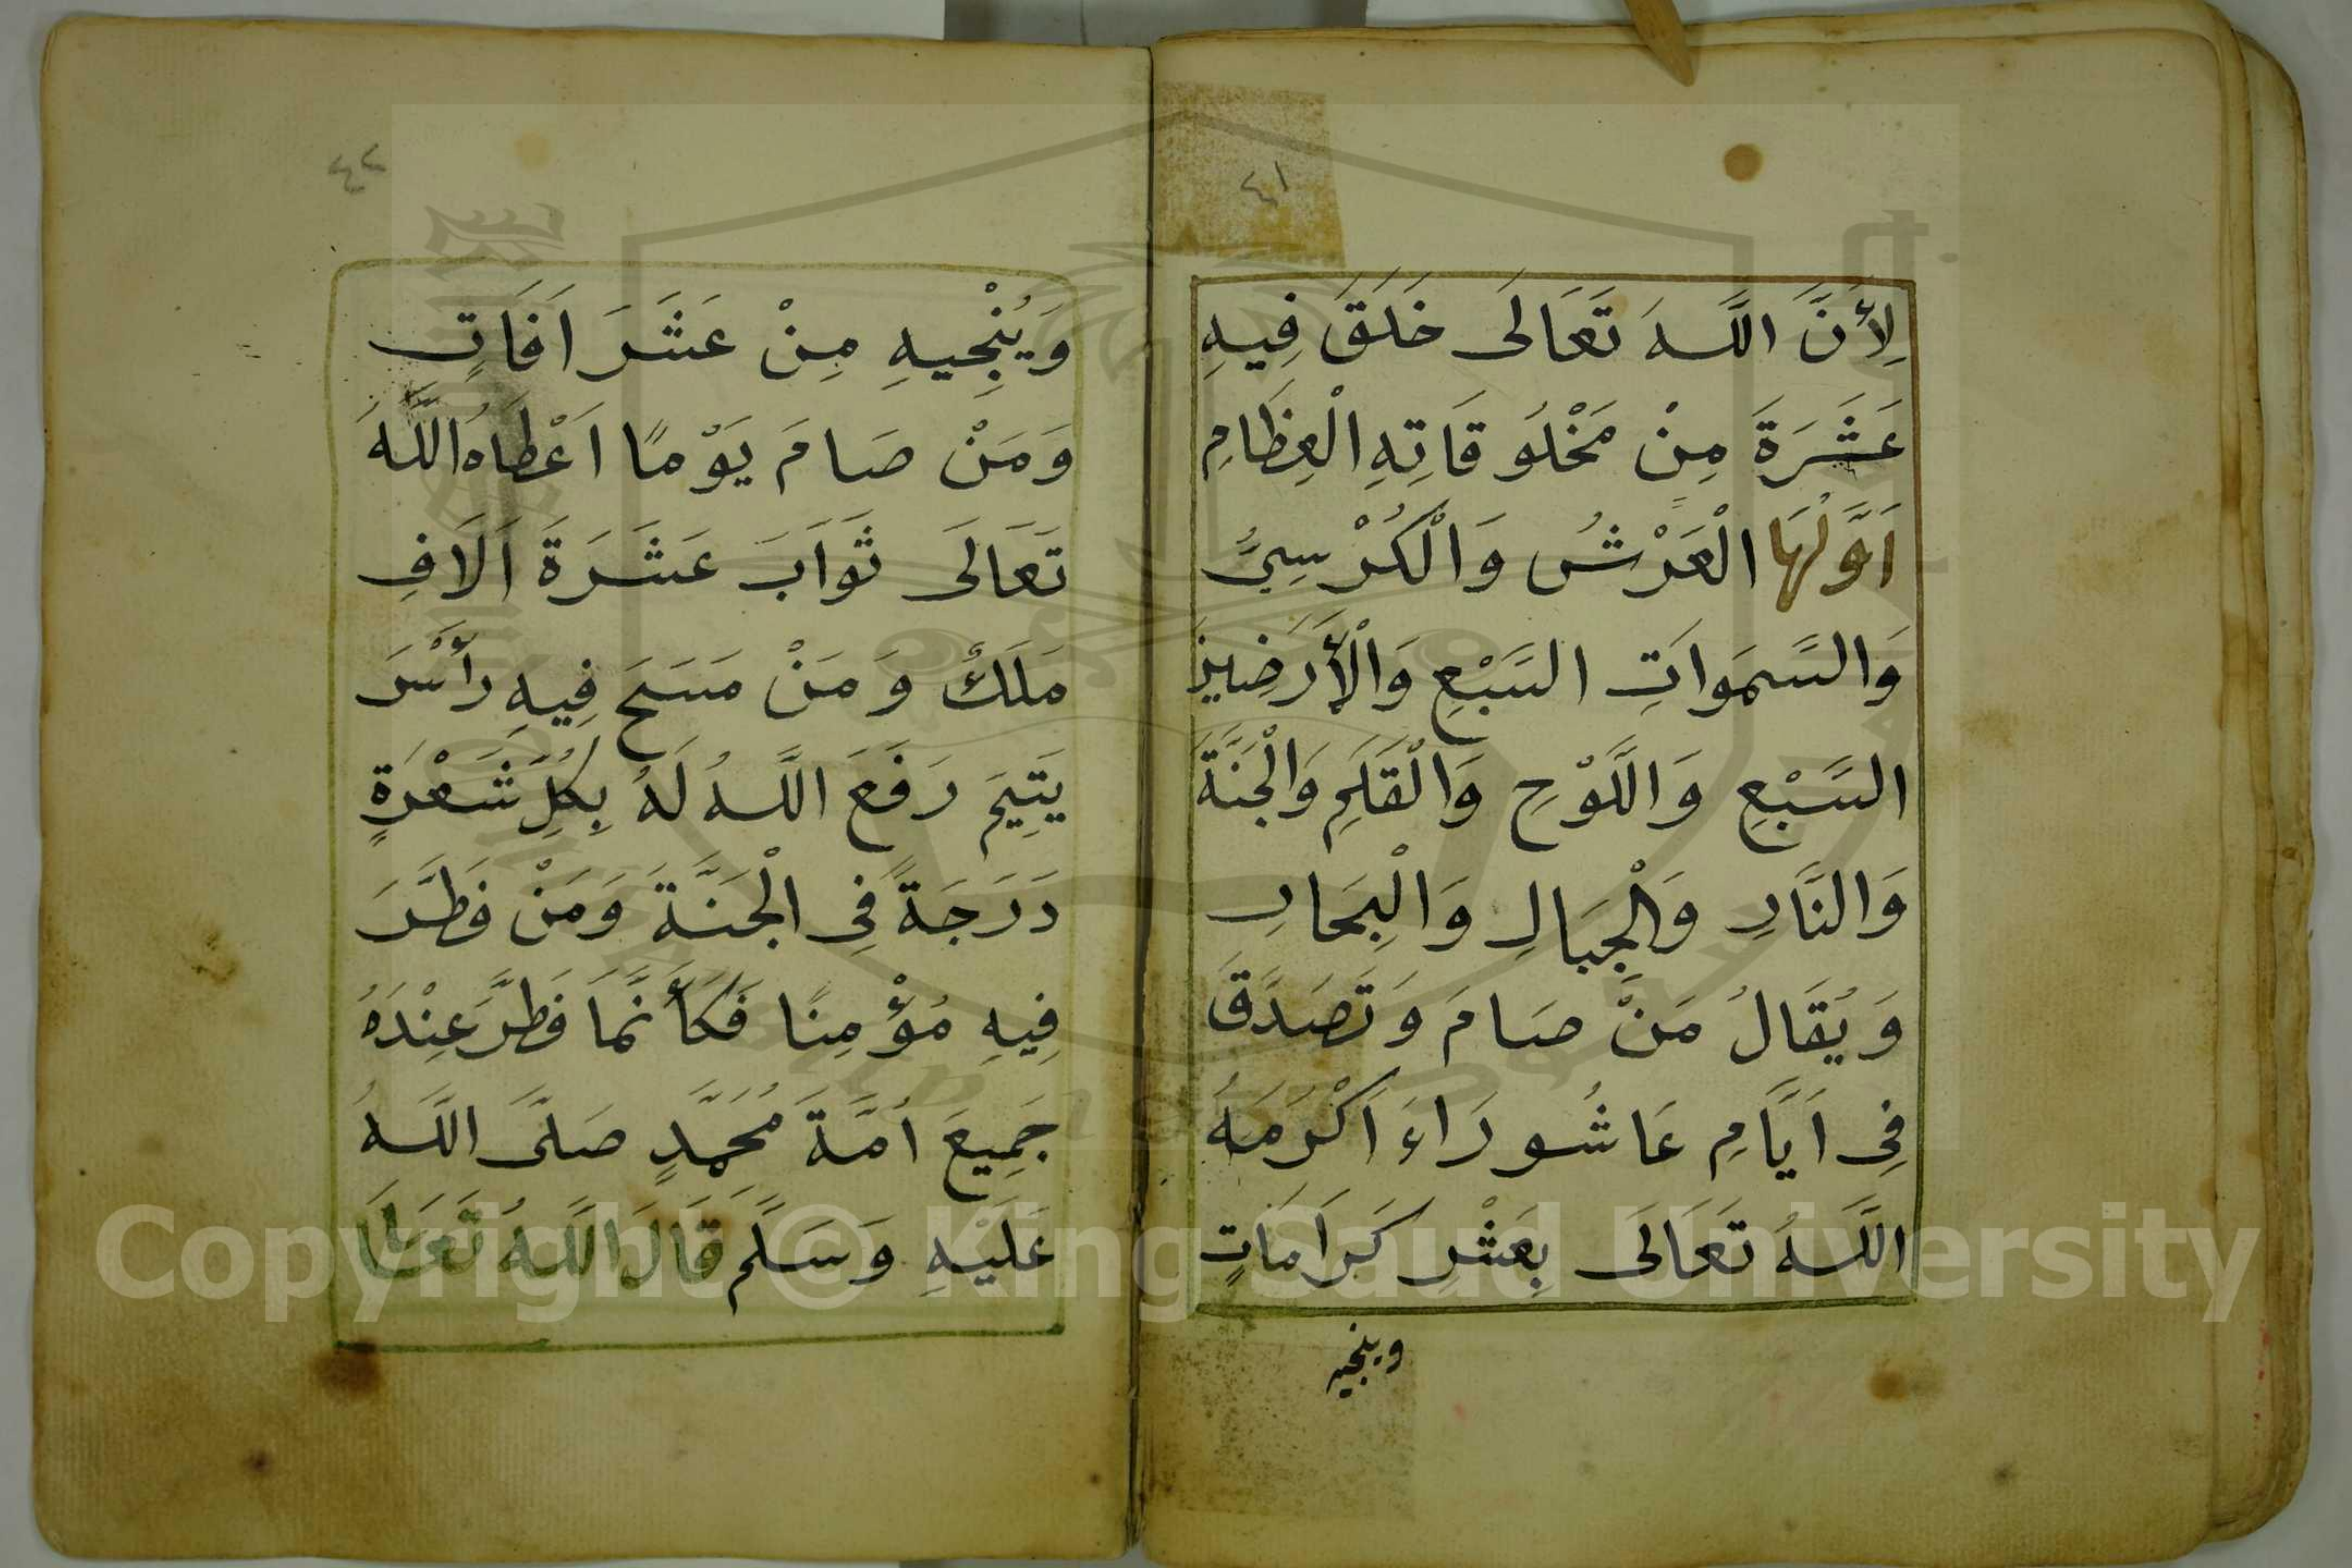 ٤١
لِأَنَّ اللَّهَ تَعَالَى خَلَقَ فِيهِ
عَشَرَةَ مِنْ مَخْلُوقَاتِهِ الْعِظَامِ
اَوَّلُهَا الْعَرْشُ وَالْكُرْسِيُّ
وَالسَّمَوَاتِ السَّبْعِ وَالْأَرَضِينَ
السَّبْعِ وَاللَّوْحِ وَالْقَلَمِ وَالْجَنَّةَ
وَالنَّارِ وَالْجِبَالِ وَالْبِحَارِ
وَيُقَالُ مَنْ صَامَ وَتَصَدَّقَ
فِى اَيَّامِ عَاشُورَاءَ اَكْرَمَهُ
اللَّهُ تَعَالَى بِعَشْرِ كَرَامَاتٍ
وينجيه
٤٢
وَيُنْجِيهِ مِنْ عَشَرَ اَفَاتٍ
وَمَنْ صَامَ يَوْمًا اَعْطَاهُ اللَّهُ
تَعَالَى ثَوَابَ عَشَرَةَ اَلَافِ
مَلَكٌ وَمَنْ مَسَحَ فِيهِ رَأْسَ
يَتِيمَ رَفَعَ اللَّهُ لَهُ بِكُلِّ شَعْرَةٍ
دَرَجَةً فِى الْجَنَّةَ وَمَنْ فَطَّرَ
فِيهِ مُؤْمِنًا فَكَأَنَّمَا فَطَّرَ عِنْدَهُ
جَمِيعَ اُمَّةَ مُحَمَّدٍ صَلَّى اللَّهُ
عَلَيْهِ وَسَلَّمَ قَالَ اللَّهُ تَعَالَى
Copyright © King Saud University